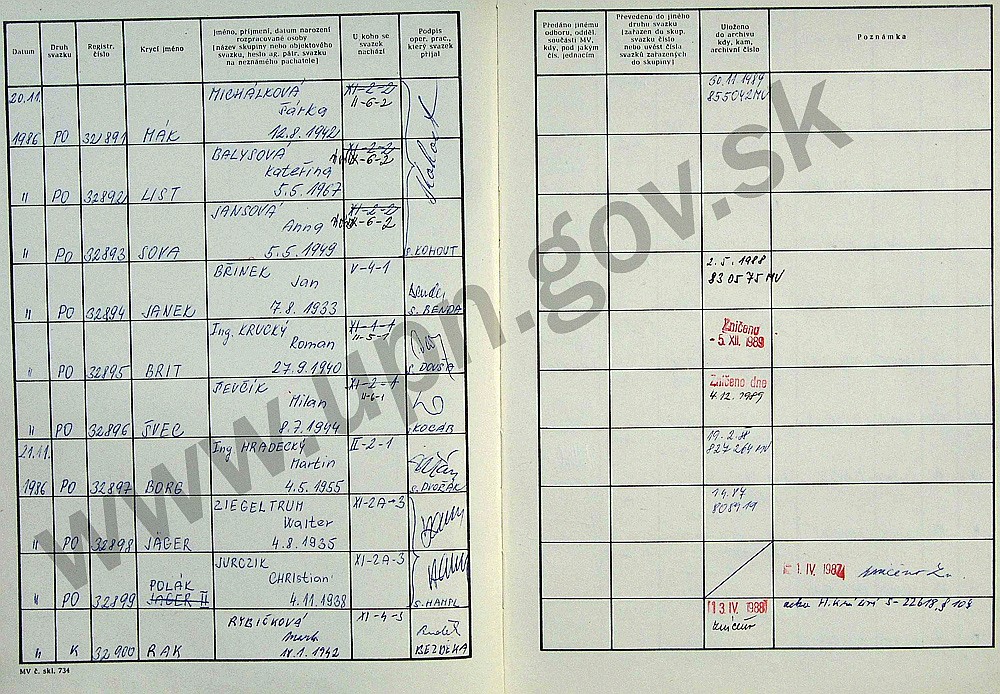 Datum
Druh
svazku
Registr.
číslo
Krycí jméno
Jméno, příjmení, datum narození
rozpracované osoby
[název skupiny nebo objektového
svazku, heslo ag. pátr. svazku
na neznámého pachatele]
U koho se
svazek
nachází
Podpis
oper. prac.,
který svazek
přijal
Předáno jinému
odboru, odděl.
součásti MV,
kdy, pod jakým
čís. jednacím
Převedeno do jiného
druhu svazku
[zařazen do skup.
svazku číslo
nebo uvést čísla
svazků zařazených
do skupiny]
Uloženo
do archivu
kdy, kam,
archivní číslo
Poznámka
20.11.
MICHÁLKOVÁ
XI-2-2
II-6-2
30.11.1989
855042 MV
Šárka
1986 PO 32891 MÁK 12.8.1942
BALYSOVÁ
XI-2-2
IX-6-2
Kateřina
" PO 32892 LIST 5.5.1967
JANSOVÁ
XI-2-2
IX-6-2
Anna
" PO 32893 SOVA 5.5.1949 s. KOHOUT
BŘINEK V-4-1
2.5.1988
830575 MV
Jan
" PO 32894 JANEK 7.8.1933 s. BENDA
Ing. KRUCKÝ XI-1-1
II-5-1
Zničeno
-5. XII. 1989
Roman
" PO 32895 BRIT 27.9.1940 s. DOUŠA
ŠEVČÍK XI-2-1
II-6-1
Zničeno dne
4.12.1989
Milan
" PO 32896 ŠVEC 8.7.1944 KOCÁB
21.11. Ing. HRADECKÝ II-2-1
827264 MV
Martin
1986 PO 32897 BORG 4.5.1955 s. DVOŘÁK
ZIEGELTRUM XI-2A-3
Walter
" PO 32898 JÄGER 4.8.1935
JURCZIK XI-2A-3
POLÁK CHRistian
1. IV. 1987
" PO 32899 JÄGER II 4.11.1938 s. HAMPL
RYBIČKOVÁ XI-4-3
13. IV. 1988
" K 32900 RAK 18.1.1942 BEZDĚKA
MV č. skl. 734
www.upn.gov.sk